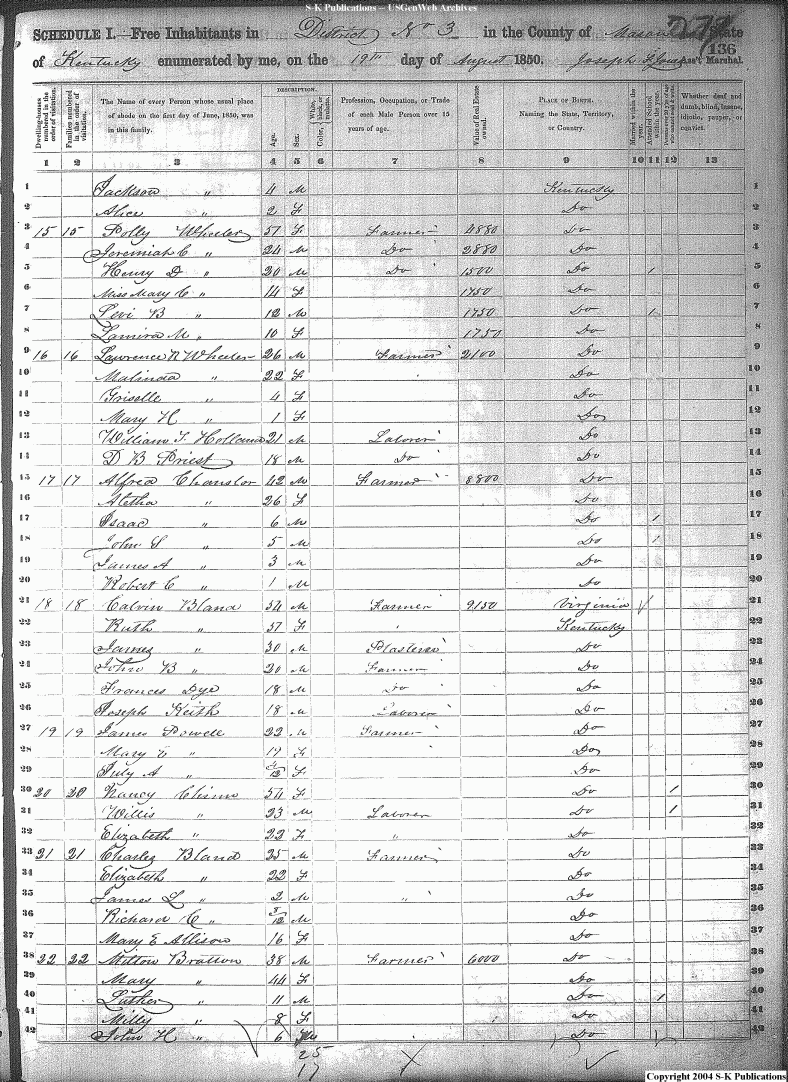 S-K Publications -- USGenWeb Archives
SCHEDULE I.—Free Inhabitants in District No 3 in the County of Mason State
of Kentucky enumerated by me, on the 19th day of August 1850. Joseph Ass't Marshal.
136
Dwelling-houses numbered in the order of visitation.
Families numbered in the order of visitation.
The Name of every Person whose usual place of abode on the first day of June, 1850, was in this family.
DESCRIPTION.
Age.
Sex.
Color, White, black, or mulatto.
Profession, Occupation, or Trade of each Male Person over 15 years of age.
Value of Real Estate owned.
PLACE OF BIRTH. Naming the State, Territory, or Country.
Married within the year.
Attended School within the year.
Whether deaf and dumb, blind, insane, idiotic, pauper, or convict.
1 2 3 4 5 6 7 8 9 10 11 12 13
1 Jackson " 4 M Kentucky 1
2 Alice " 2 F Do 2
3 15 15 Polly Wheeler 57 F Farmer 4880 Do 3
4 Jeremiah C " 24 M Do 2880 Do 4
5 Henry D " 20 M Do 1500 Do 1 5
6 Miss Mary C " 14 F 1750 Do 6
7 Levi B " 12 M 1750 Do 1 7
8 Lamira M " 10 F 1750 Do 8
9 16 16 Lawrence N Wheeler 26 M Farmer 2100 Do 9
10 Malinda " 22 F Do 10
11 Griselle " 4 F Do 11
12 Mary H " 1 F Do 12
13 William T. Holland 21 M Laborer Do 13
14 D B Priest 18 M Do Do 14
15 17 17 Alfred Chanslor 42 M Farmer 8800 Do 15
16 Aletha " 26 F Do 16
17 Isaac " 6 M Do 1 17
18 John S " 5 M Do 1 18
19 James A " 3 M Do 19
20 Robert C " 1 M Do 20
21 18 18 Calvin Bland 54 M Farmer 2150 Virginia 21
22 Ruth " 57 F Kentucky 22
23 James " 30 M Plasterer Do 23
24 John B " 20 M Farmer Do 24
25 Frances Dye 18 M Do Do 25
26 Joseph Keith 18 M Laborer Do 26
27 19 19 James Powell 22 M Farmer Do 27
28 Mary E " 17 F Do 28
29 July A " /12 F Do 29
30 20 20 Nancy Chism 54 F Do 1 30
31 Willis " 23 M Laborer Do 1 31
32 Elizabeth " 22 F " Do 32
33 21 21 Charles Bland 25 M Farmer Do 33
34 Elizabeth " 22 F Do 34
35 James L " 2 M " Do 35
36 Richard C " /12 M Do 36
37 Mary E Allison 16 F Do 37
38 22 22 Milton Bratton 38 M Farmer 6000 Do 38
39 Mary " 44 F Do 39
40 Luther " 11 M Do 1 40
41 Milly " 8 F Do 41
42 John H " 6 M Do 42
25
17
Copyright 2004 S-K Publications